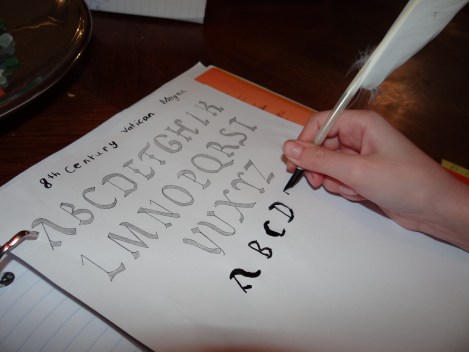 8th Century Vatican
ABCDEFGHIK
LMNOPQRST
VUXYZ
ABCD